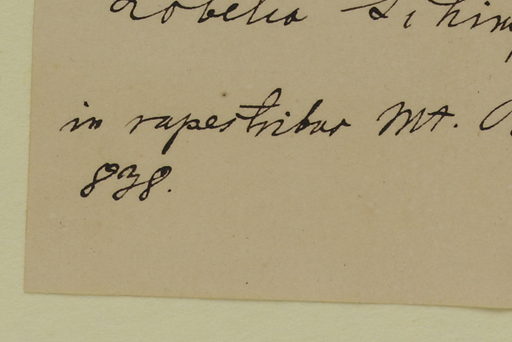 Lobelia Schim
in rupestribus Mt.
838.